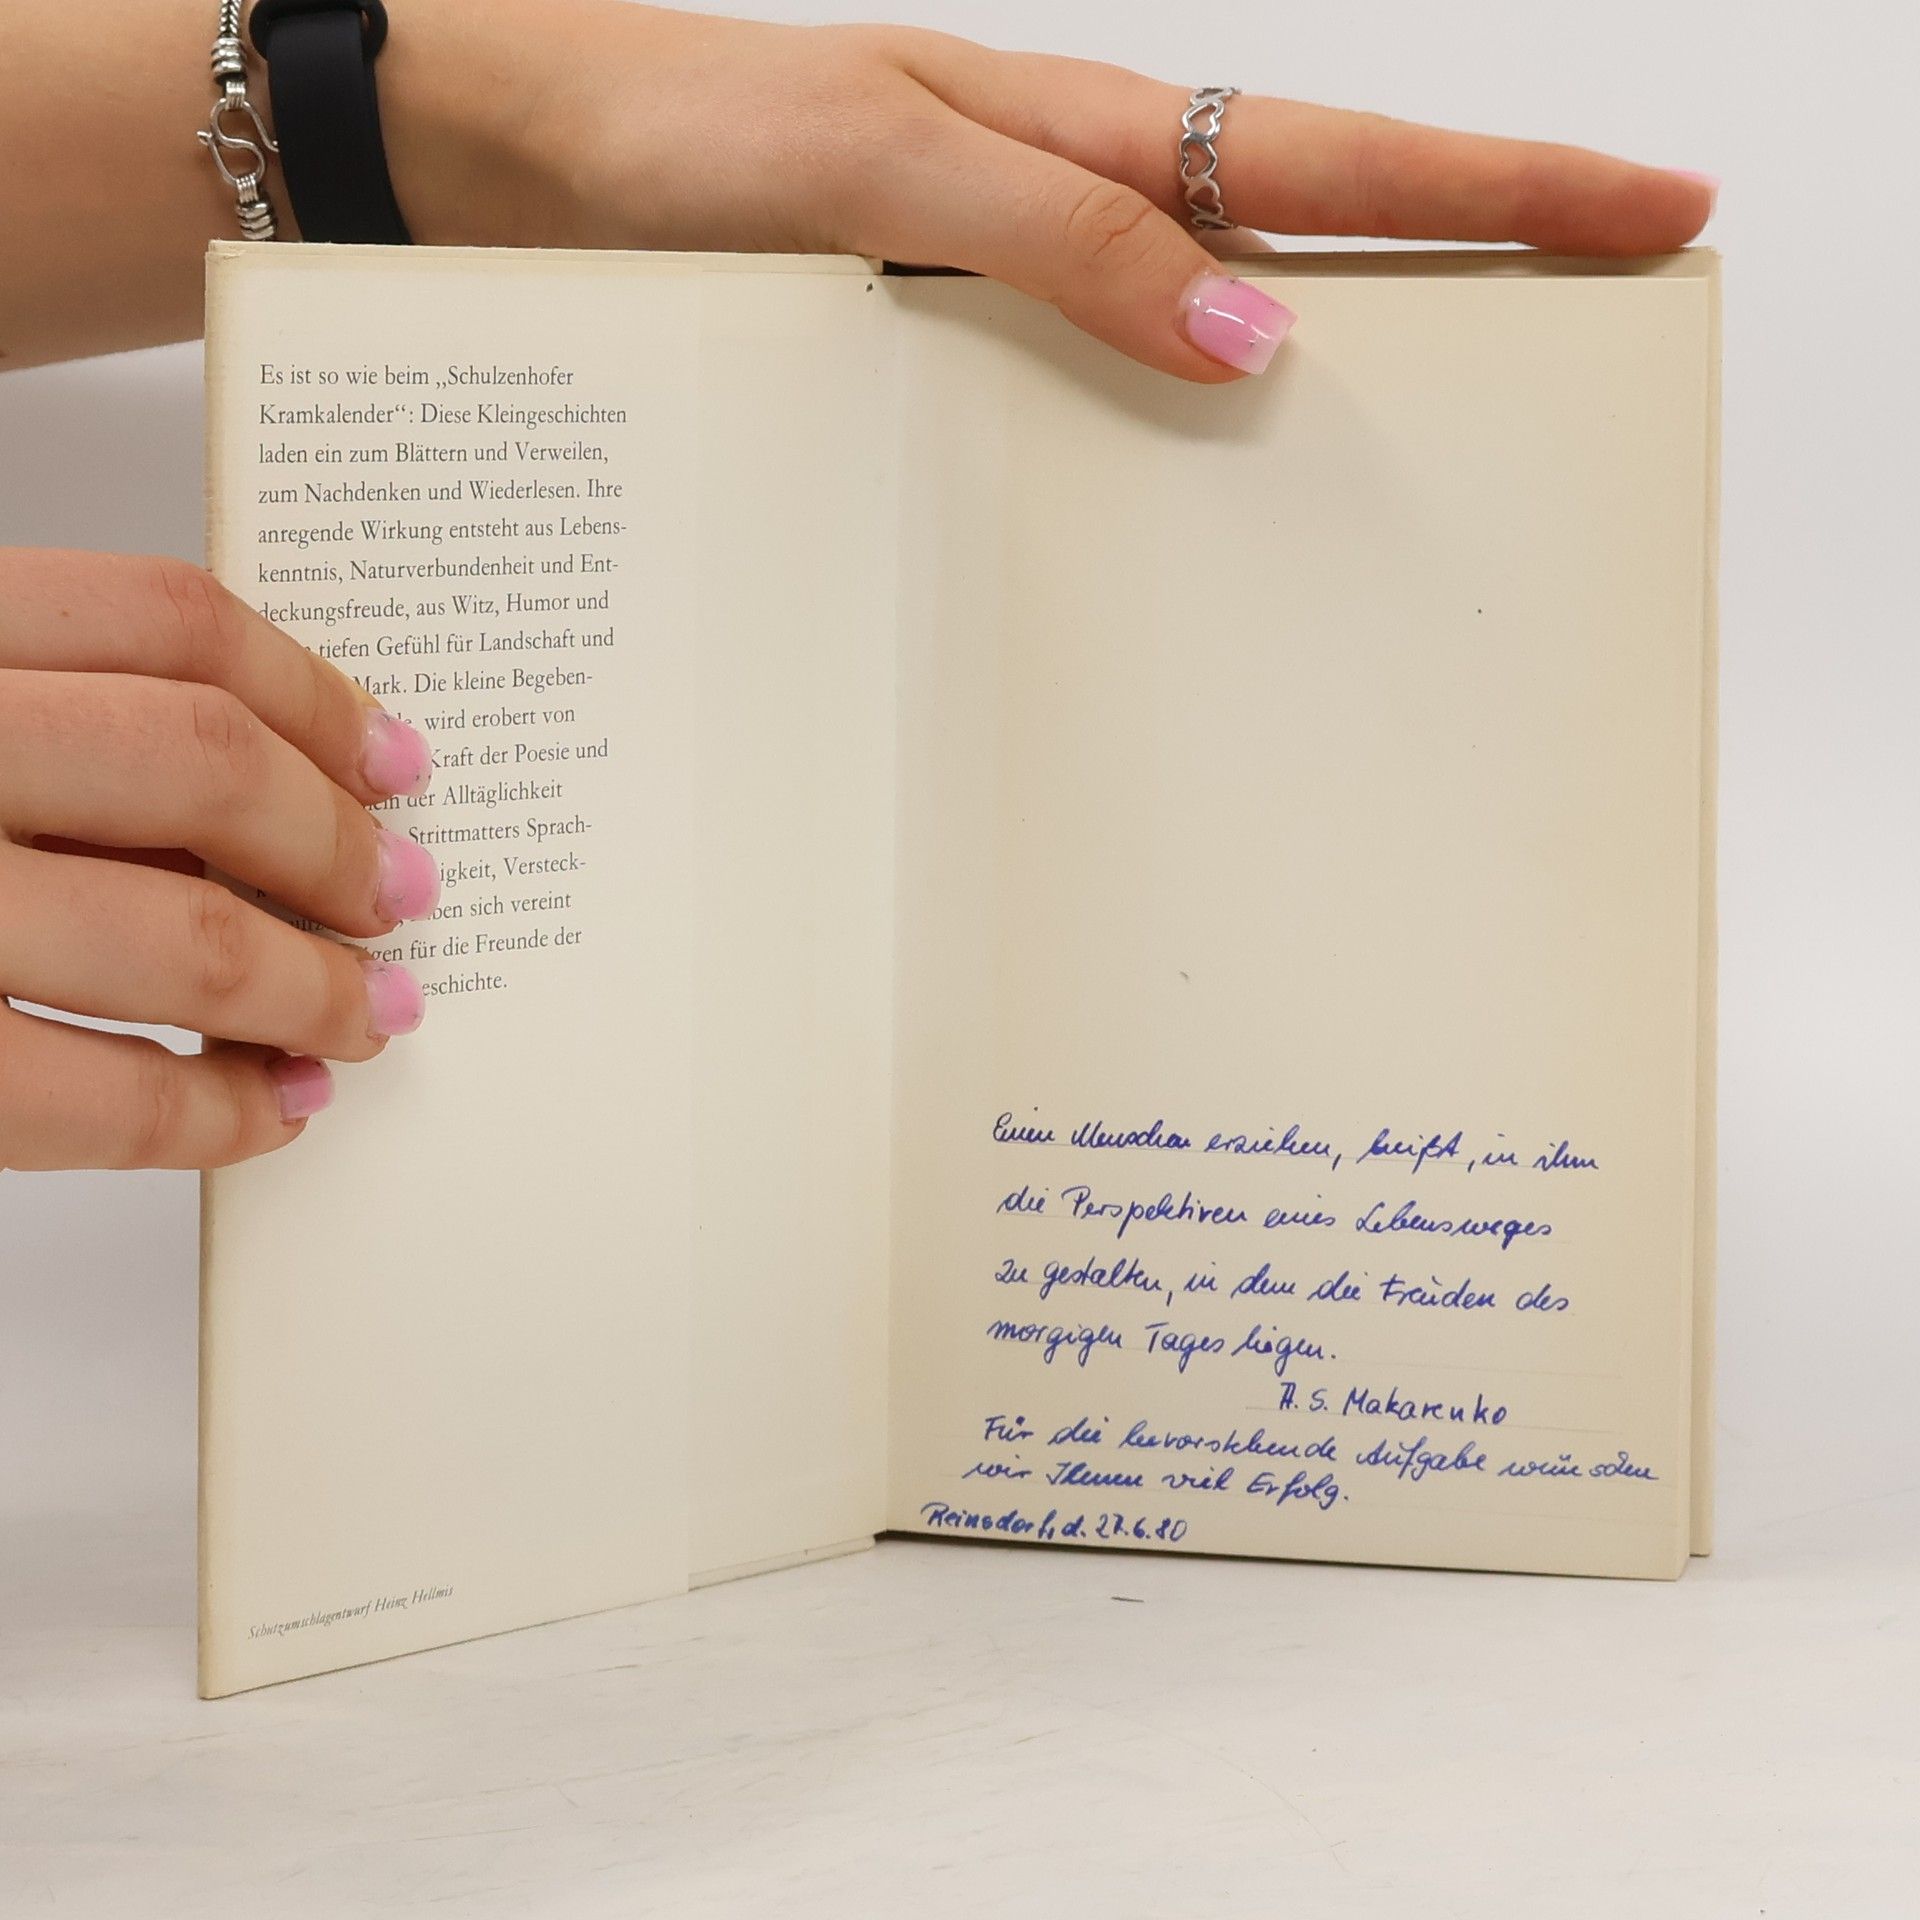 Es ist so wie beim „Schulzenhofer
Kramkalender“: Diese Kleingeschichten
laden ein zum Blättern und Verweilen,
zum Nachdenken und Wiederlesen. Ihre
anregende Wirkung entsteht aus Lebens-
kenntnis, Naturverbundenheit und Ent-
deckungsfreude, aus Witz, Humor und
tiefen Gefühl für Landschaft und
Mark. Die kleine Begeben-
wird erobert von
Kraft der Poesie und
der Alltäglichkeit
Strittmatters Sprach-
igkeit, Versteck-
sich vereint
für die Freunde der
eschichte.
Schutzumschlagentwurf Heinz Hellmis
Einen Menschen erziehen, heißt, in ihm
die Perspektiven eines Lebensweges
zu gestalten, in dem die Freuden des
morgigen Tages liegen.
A. S. Makarenko
Für die bevorstehende Aufgabe wünschen
wir Ihnen viel Erfolg.
Reinsdorf, d. 27.6.80